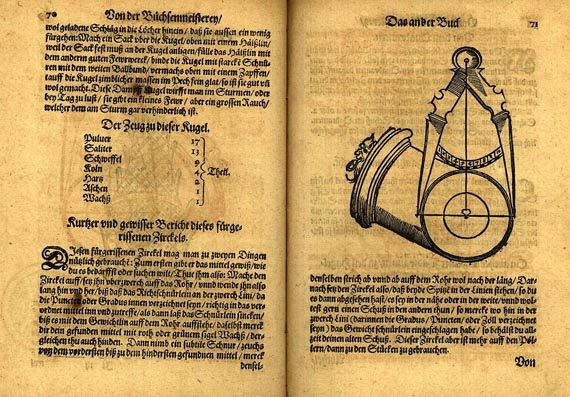 70 Von der Büchsenmeisterey/
wol geladene Schläg in die Löcher hinein/ daß sie aussen ein wenig
fürgehen: Mach ein Sack über die Kugel/ oben mit einem Häißlin/
weil der Sack fest muß an der Kugel anligen/ fülle das Häißlin mit
dem andern guten Fewrwerck/ binde die Kugel mit starcke Schnü-
ren mit dem weiten Ballbund/ vermachs oben mit einem Zapffen/
tauff die Kugel zimblicher massen im Pech fein glat/ so ist sie gut vñ
wol gemacht. Diese Dampffkugel wirfft man im Sturmen/ oder
bey Tag zu lust/ sie gibt ein kleines Fewr/ aber ein grossen Rauch/
welcher dem am Sturm gar verhinderlich ist.
Der Zeug zu dieser Kugel.
Puluer 17
Saliter 13
Schweffel 9
Koln 4
Hartz 2
Aschen 1
Wachß 1
Theil.
Kurtzer vnd gewisser Bericht dieses fürge-
rissenen Zirckels.
Diesen fürgerissenen Zirckel mag man zu zweyen Dingen
nützlich gebraucht: Zum ersten gibt er das mittel gewiß/ wie
du es bedarffst oder suchen wilt/ Thue jhm also: Mache den
Zirckel auff/ setz jhn vberzwerch auff das Rohr/ vnnd wende jhn also
lang hin vnd her/ biß daß das Richtschnürlein an der zwerch Lini/ da
die Puncten oder Gradus innen verzeichnet seyn/ richtig in das ver-
ordnet mittel inn vnd zutreffe/ als dann laß das Schnürlein sincken/
biß es mit dem Gewichtlin auff dem Rohr auffziehe/ daselbst merck
dir dein gefunden mittel mit roth oder grünem sigel Wachß/ der-
gleichen thu auch hinden. Dann nimb ein subtile Schnur/ zeuchs
von dem vordersten biß zu dem hindersten gefundnen mittel/ merck
densel-
Das ander Buch 71
denselben strich ab vnnd ab auff dem Rohr wol nach der läng/ Dar-
nach setz den Zirckel also/ daß beyde Spitz in der Linien stehen/ so du
es dann abgesehen hast/ es sey in der nähe oder in der weite/ vnnd wol-
test gern einen Schuß in den andern thun/ so mercke wo jhm in der
zwerch Lini (darinnen die Gradus/ Puncten/ oder Zöll verzeichnet
seyn) das Gewicht schnürlein eingeschlagen habe/ so behältst du all-
zeit deinen alten Schuß. Dieser Zirckel aber ist mehr auff den Pöl-
lern/ dann zu den Stücken zu gebrauchen.
Von